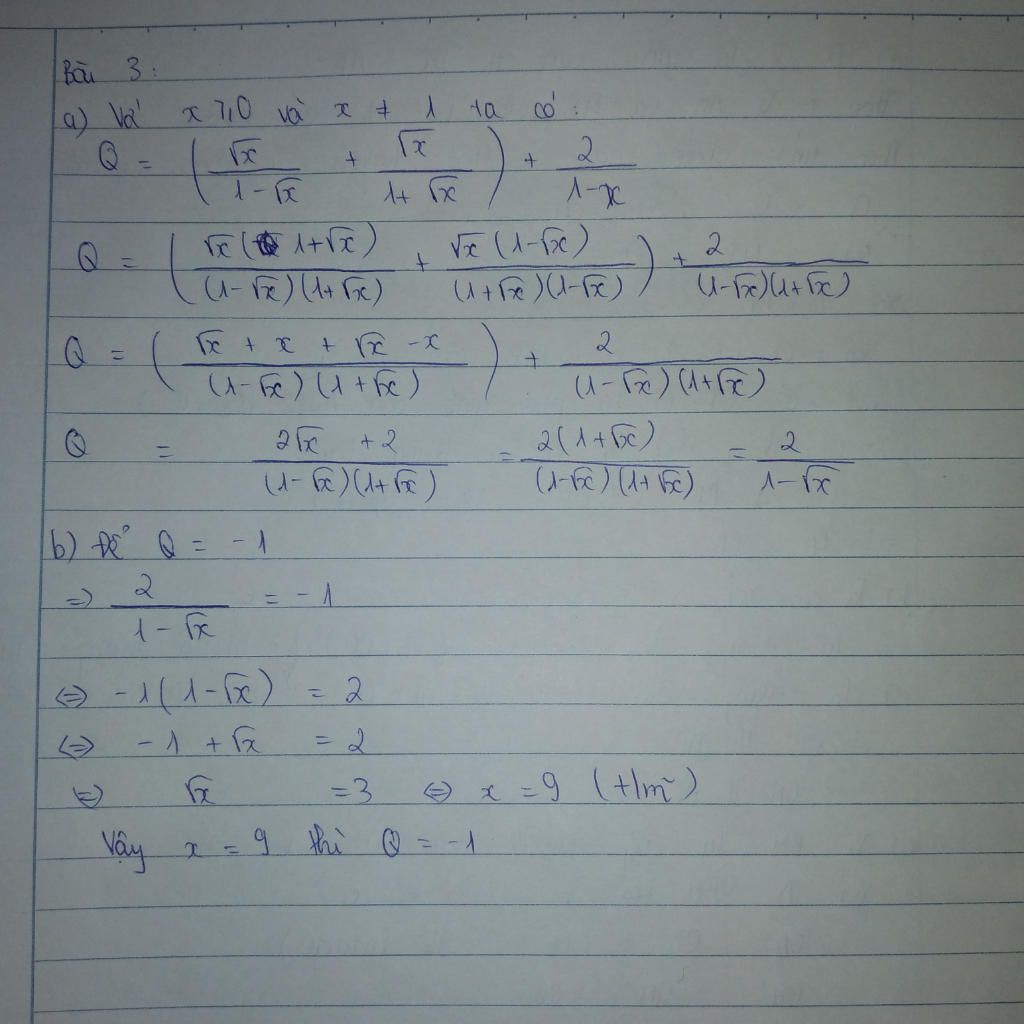 Bài 3:
a) Với x ⩾ 0 và x ≠ 1 ta có:
Q = (√x / (1 - √x) + √x / (1 + √x)) + 2 / (1 - x)
Q = (√x(1 + √x) / (1 - √x)(1 + √x) + √x(1 - √x) / (1 + √x)(1 - √x)) + 2 / (1 - √x)(1 + √x)
Q = ((√x + x + √x - x) / (1 - √x)(1 + √x)) + 2 / (1 - √x)(1 + √x)
Q = (2√x + 2) / (1 - √x)(1 + √x) = 2(1 + √x) / (1 - √x)(1 + √x) = 2 / (1 - √x)
b) Để Q = -1
=> 2 / (1 - √x) = -1
<=> -1(1 - √x) = 2
<=> -1 + √x = 2
<=> √x = 3 <=> x = 9 (t/m)
Vậy x = 9 thì Q = -1